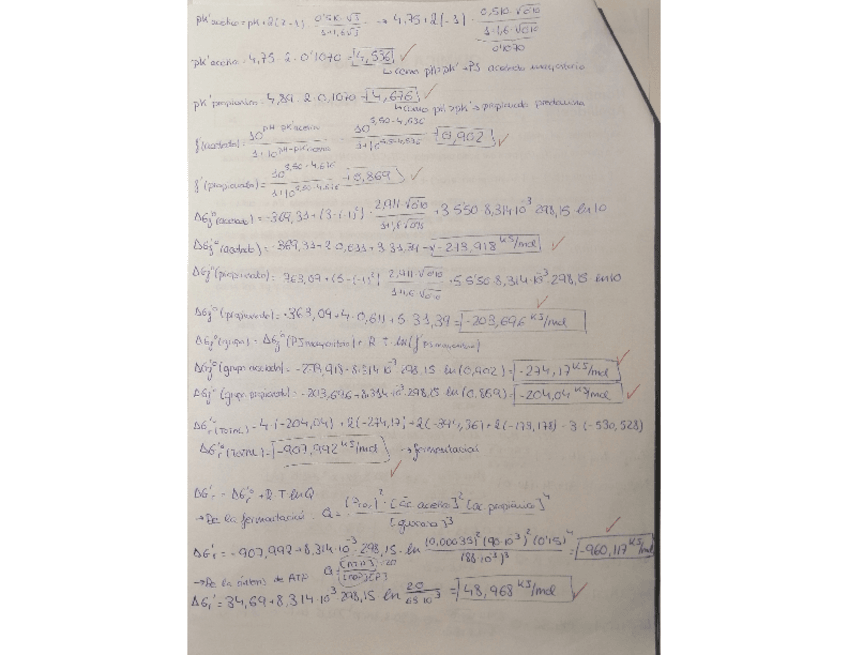 pK'acético = pK + 2(z-1) · 0'510·√I / 1+1,6√I → 4,75 + 2(-1) · 0,510·√0'10 / 1+1,6·√0'10
0'1070
pK'acético = 4,75 - 2 · 0'1070 = 4,536
↳ como pH > pK' → PJ acetato mayoritario
pK'propiónico = 4,89 - 2 · 0,1070 = 4,676
↳ como pH > pK' → propionato predomina
f(acetato) = 10^pH-pK'acético / 1+10^pH-pK'acético = 10^5,50-4,536 / 1+10^5,50-4,536 = 0,902
f'(propionato) = 10^5,50-4,676 / 1+10^5,50-4,676 = 0,869
ΔGf'º(acetato) = -369,31 + (3-(-1)²) · 2,911·√0'10 / 1+1,6√0'10 + 3·5'50·8,314·10⁻³·298,15·ln10
ΔGf'º(acetato) = -369,31 + 2·0,611 + 3·31,39 = -273,918 KJ/mol
ΔGf'º(propionato) = 363,09 + (5-(-1)²) 2,911·√0'10 / 1+1,6·√0'10 + 5·5'50·8,314·10⁻³·298,15·ln10
ΔGf'º(propionato) = -363,09 + 4·0,611 + 5·31,39 = -203,696 KJ/mol
ΔGf'º(grupo) = ΔGf'º(PJ mayoritario) + R·T·ln(f' PJ mayoritario)
ΔGf'º(grupo acetato) = -273,918 + 8,314·10⁻³·298,15·ln(0,902) = -274,17 KJ/mol
ΔGf'º(grupo propionato) = -203,696 + 8,314·10⁻³·298,15·ln(0,869) = -204,04 KJ/mol
ΔGr'º(TOTAL) = 4·(-204,04) + 2(-274,17) + 2(-395,36) + 2(-178,178) - 3(-530,528)
ΔGr'º(TOTAL) = -907,992 KJ/mol → fermentación
ΔGr' = ΔGr'º + R·T·lnQ
→ De la fermentación: Q = [PCO₂]²·[ác acético]²[ác propiónico]⁴ / [glucosa]³
ΔGr' = -907,992 + 8,314·10⁻³·298,15·ln (0,00035)²(90·10⁻³)²(0'15)⁴ / (88·10⁻³)³ = -960,117 KJ/mol
→ De la síntesis de ATP Q = [ATP] / [ADP][P]
ΔGr' = 34,69 + 8,314·10⁻³·298,15·ln 20 / 65·10⁻³ = 48,968 KJ/mol